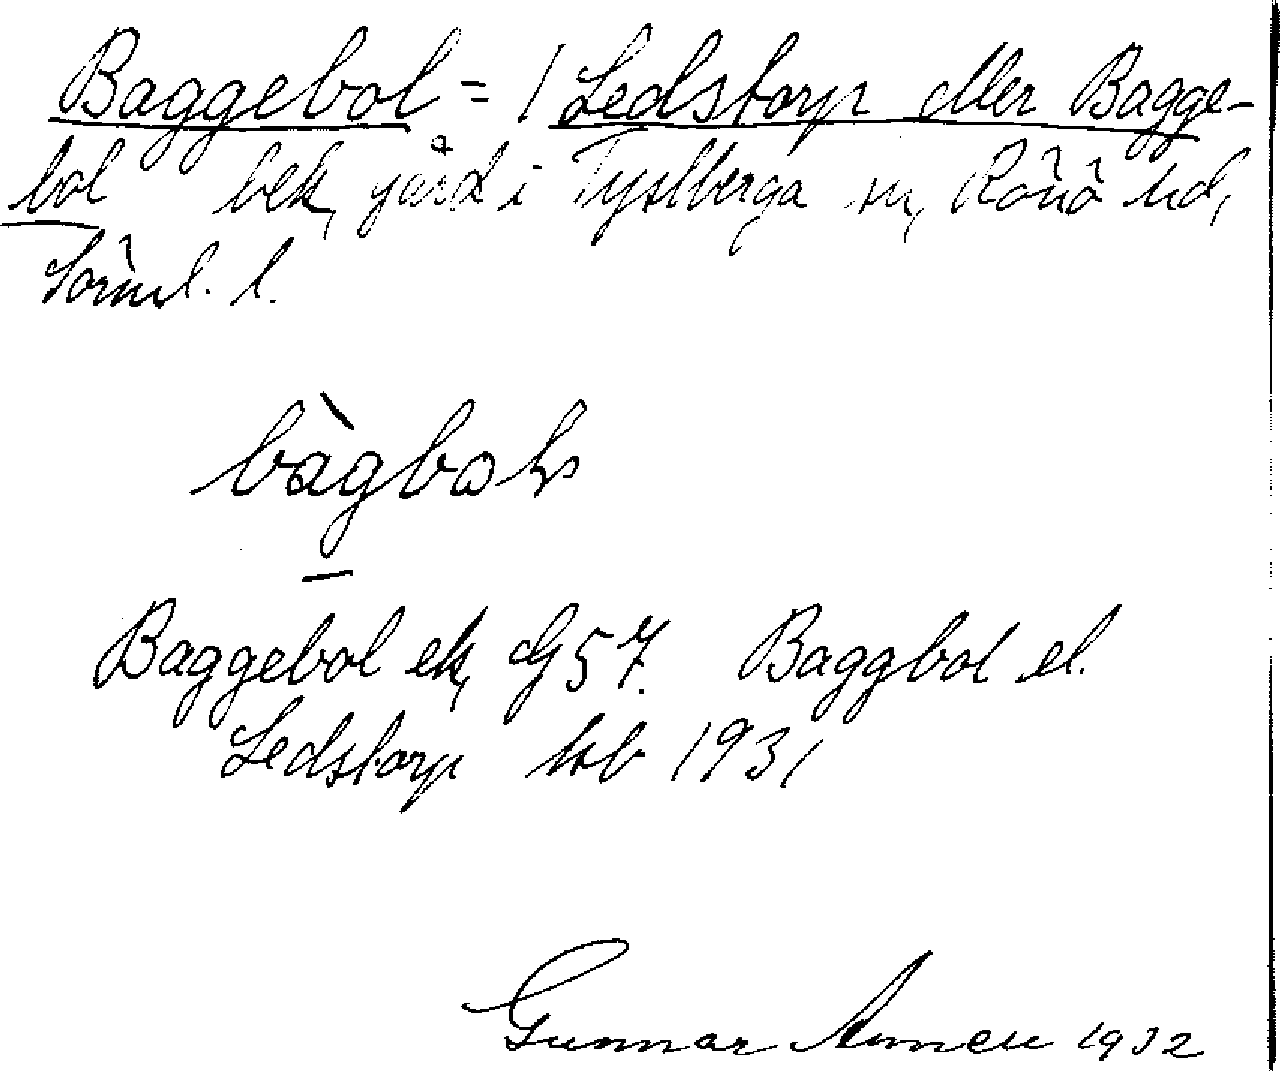 Baggebol = / Ledstorp eller Bagge-
bol bek, gård i Tystberga sn, Rönö hd,
Sörml. l.
bàgbol
Baggebol ek, G57. Baggbol el.
Ledstorp 1931
Gunnar Amneus 1932